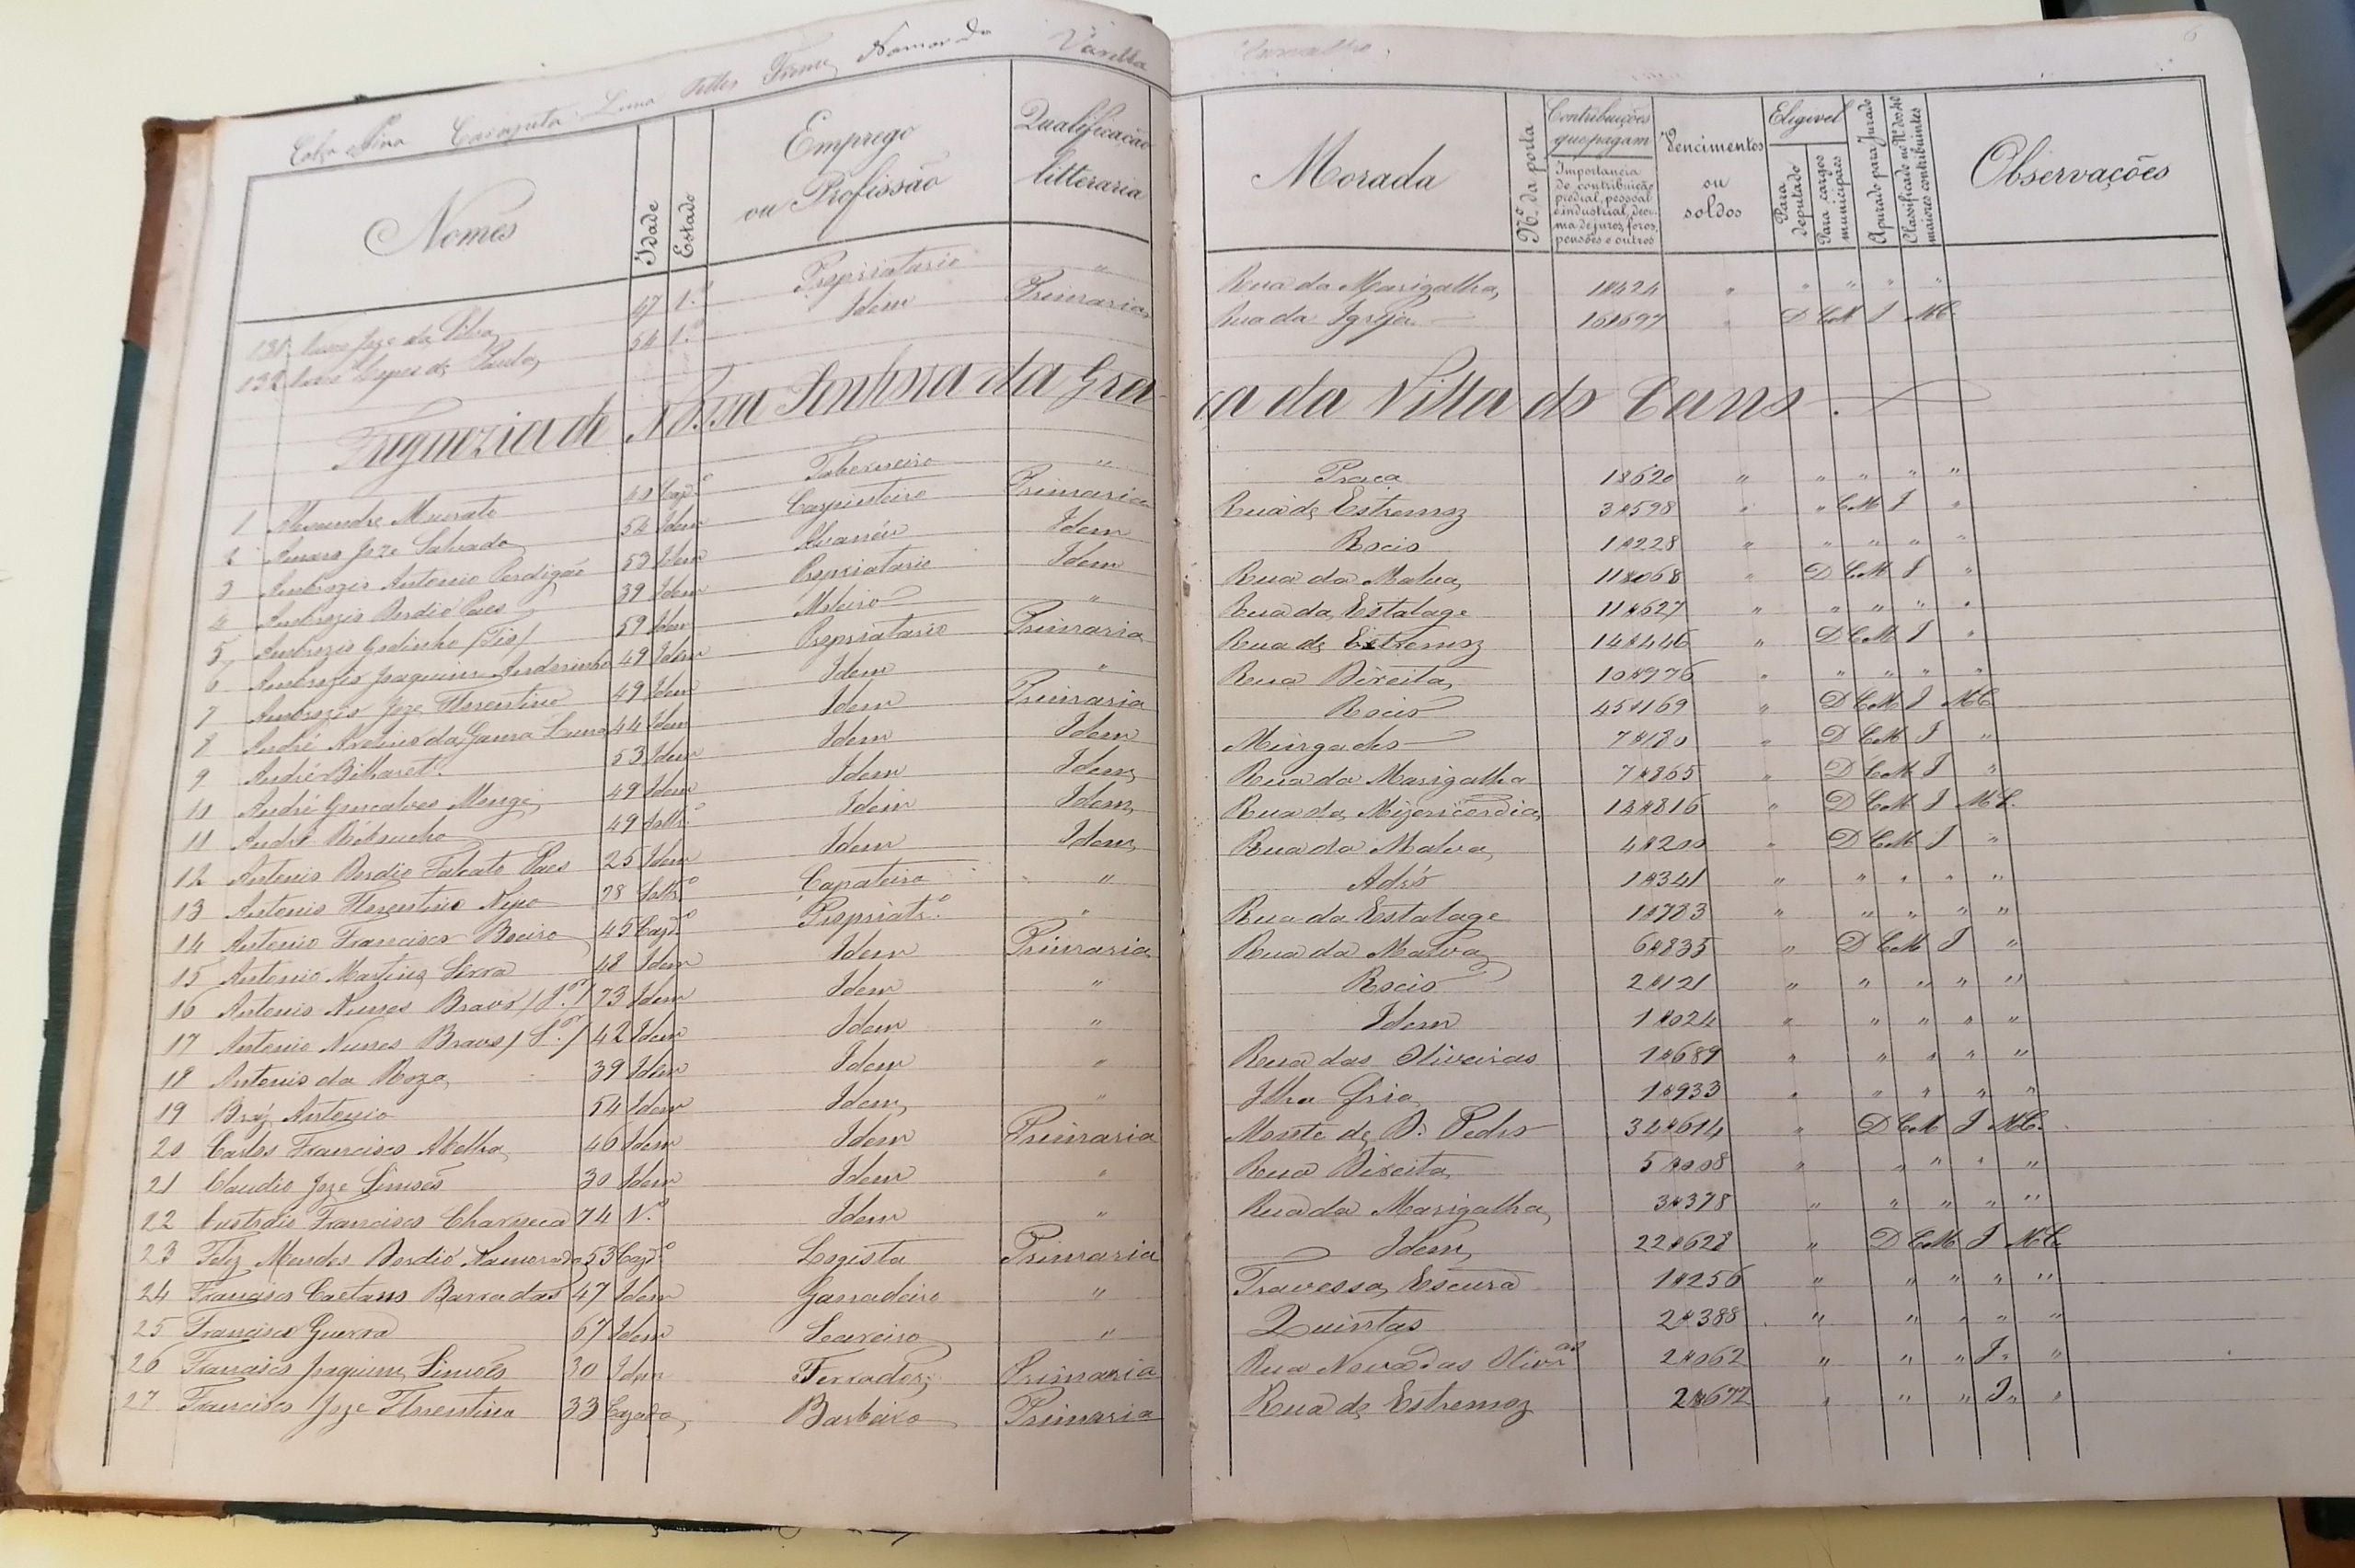 Telles Freire Namorado Varella Carvalho
Nomes Idade Estado Emprego ou Profissão Qualificação litteraria Morada Nº da porta Contribuições que pagam Importancia de contribuição predial, pessoal e industrial, decima de juros, foros, pensões e outros Vencimentos ou soldos Eligivel Para deputado Para cargos municipaes Apurado para Jurado Classificado no Nº dos 40 maiores contribuintes Observações
131 Joze da Silva 47 Propriatario " Rua da Marigalha 1$424 " " " " "
132 Lopes de 54 Idem Primaria Rua da Igreja 16$697 " D CM J MC
Freguezia de Nossa Senhora da Graça da Villa do Cano.
1 Alexandre Murato 40 Cazdº Taberneiro " Praça 1$620 " " " " "
2 Amaro Joze Salvado 54 Idem Carpinteiro Primaria Rua de Estremoz 3$598 " " CM J "
3 Ambrozio Antonio Perdigão 53 Idem Alvanéu Idem Rocio 1$228 " " " " "
4 Ambrozio Bordió Paes 39 Idem Propriatario Idem Rua da Malva 11$068 " D CM J "
5 Ambrozio Godinho /Tio/ 59 Idem Moleiro " Rua da Estalage 11$627 " " " " "
6 Ambrozio Joaquim Andorinho 49 Idem Propriatario Primaria Rua de Estremoz 14$446 " D CM J "
7 Ambrozio Joze Florentino 49 Idem Idem " Rua Direita 10$976 " " " " "
8 André Avelino da Gama Luna 44 Idem Idem Primaria Rocio 45$169 " D CM J MC
9 André 53 Idem Idem Idem Morgado 7$180 " D CM J "
10 André Gonçalves Monge 49 Idem Idem Idem Rua da Marigalha 7$865 " D CM J "
11 André 49 Soltrº Idem Idem Rua da Mizericordia 18$816 " D CM J MC
12 Antonio Bordio Falcato Paes 25 Idem Idem Idem Rua da Malva 4$200 " D CM J "
13 Antonio Florentino 28 Soltrº Çapateiro " Adro 1$341 " " " " "
14 Antonio Francisco Boeiro 45 Cazdº Propriatrº " Rua da Estalage 1$783 " " " " "
15 Antonio Martins Serra 48 Idem Idem Primaria Rua da Malva 6$835 " D CM J "
16 Antonio Nunes Bravo /Jor/ 73 Idem Idem " Rocio 2$121 " " " " "
17 Antonio Nunes Bravo /Sor/ 42 Idem Idem " Idem 1$024 " " " " "
18 Antonio da Roza 39 Idem Idem " Rua das Oliveiras 1$689 " " " " "
19 Braz Antonio 54 Idem Idem " Ilha Fria 1$933 " " " " "
20 Carlos Francisco Abelho 46 Idem Idem Primaria Monte de D. Pedro 34$614 " D CM J MC
21 Claudio Joze Simões 30 Idem Idem " Rua Direita 5$008 " " " " "
22 Custodio Francisco Charneca 74 V.º Idem " Rua da Marigalha 3$378 " " " " "
23 Feliz Mendes Bordió Namorado 53 Cazdº Logista Primaria Idem 22$628 " D CM J MC
24 Francisco Caetano Barradas 47 Idem Ganadeiro " Travessa Escura 1$256 " " " " "
25 Francisco Guerra 67 Idem Seareiro " Quintas 2$388 " " " " "
26 Francisco Joaquim Simões 30 Idem Ferrador Primaria Rua Nova das Olivras 2$062 " " " J "
27 Francisco Joze Florentino 33 Cazado Barbeiro Primaria Rua de Estremoz 2$672 " " " J "